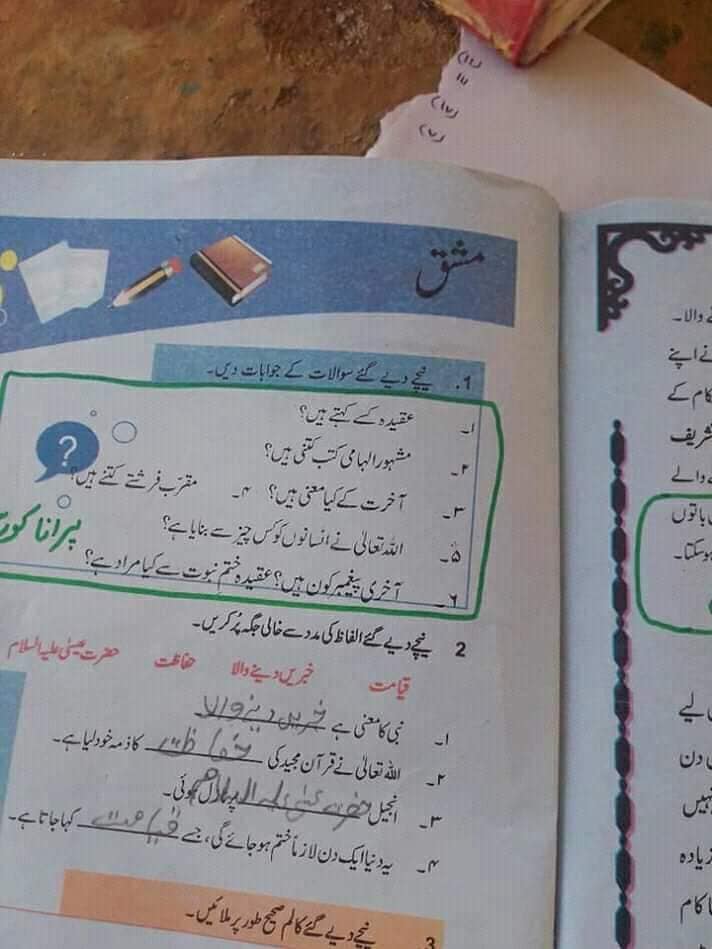 (iii)
(iv)
(v)
مشق
1. نیچے دیے گئے سوالات کے جوابات دیں۔
۱۔ عقیدہ کسے کہتے ہیں؟
۲۔ مشہور الہامی کتب کتنی ہیں؟
۳۔ آخرت کے کیا معنی ہیں؟ ۴۔ مقرّب فرشتے کتنے ہیں؟
۵۔ اللہ تعالیٰ نے انسانوں کو کس چیز سے بنایا ہے؟
۶۔ آخری پیغمبر کون ہیں؟ عقیدہ ختمِ نبوت سے کیا مراد ہے؟
پرانا کورس
2 نیچے دیے گئے الفاظ کی مدد سے خالی جگہ پُر کریں۔
قیامت خبریں دینے والا حفاظت حضرت عیسیٰ علیہ السلام
۱۔ نبی کا معنی ہے خبریں دینے والا
۲۔ اللہ تعالیٰ نے قرآن مجید کی حفاظت کا ذمہ خود لیا ہے۔
۳۔ انجیل حضرت عیسیٰ علیہ السلام پر نازل ہوئی۔
۴۔ یہ دنیا ایک دن لازماً ختم ہو جائے گی، جسے قیامت کہا جاتا ہے۔
3 نیچے دیے گئے کالم صحیح طور پر ملائیں۔
والا۔
نے اپنے
کام کے
شریف
والے
باتوں
ہو سکتا۔
لیے
دن
نہیں
زیادہ
کا کام